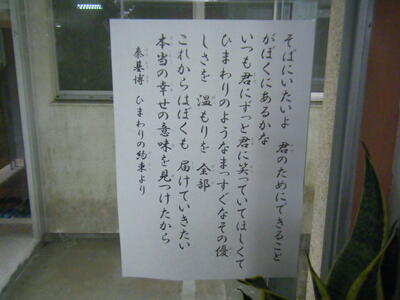 そばにいたいよ　君のためにできること
がぼくにあるかな
いつも君にずっと君に笑っていてほしくて
ひまわりのようなまっすぐなその優
しさを　温もりを　全部
これからはぼくも　届けていきたい
本当の幸せの意味を見つけたから
秦基博　ひまわりの約束より